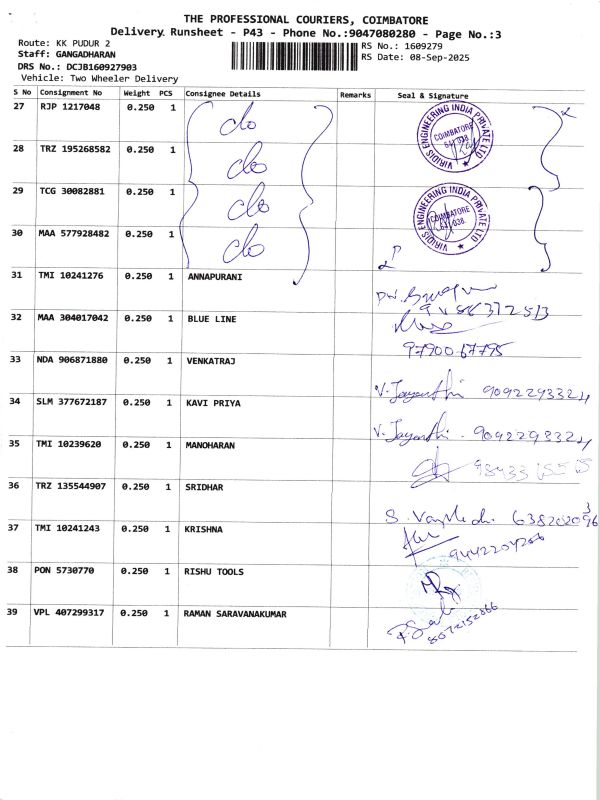 THE PROFESSIONAL COURIERS, COIMBATORE
Delivery Runsheet - P43 - Phone No.:9047080280 - Page No.:3
Route: KK PUDUR 2
Staff: GANGADHARAN
DRS No.: DCJB160927903
Vehicle: Two Wheeler Delivery
RS No.: 1609279
RS Date: 08-Sep-2025
S No Consignment No Weight PCS Consignee Details Remarks Seal & Signature
27 RJP 1217048 0.250 1
28 TRZ 195268582 0.250 1
29 TCG 30082881 0.250 1
30 MAA 577928482 0.250 1
VIRIDIS ENGINEERING INDIA PRIVATE LTD
COIMBATORE
641 038.
VIRIDIS ENGINEERING INDIA PRIVATE LTD
COIMBATORE
641 038.
31 TMI 10241276 0.250 1 ANNAPURANI
32 MAA 304017042 0.250 1 BLUE LINE
9790067795
33 NDA 906871880 0.250 1 VENKATRAJ
V. Jayanthi 9092293324
34 SLM 377672187 0.250 1 KAVI PRIYA
V. Jayanthi. 9092293324
35 TMI 10239620 0.250 1 MANOHARAN
36 TRZ 135544907 0.250 1 SRIDHAR
37 TMI 10241243 0.250 1 KRISHNA
38 PON 5730770 0.250 1 RISHU TOOLS
39 VPL 407299317 0.250 1 RAMAN SARAVANAKUMAR
8072152866